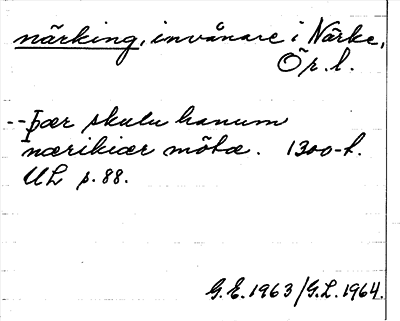 närking, invånare i Närke,
Ör. l.
--þær skulu hanum
nærikiær mötæ. 1300-t.
UL p. 88.
G.E. 1963/G.L. 1964.